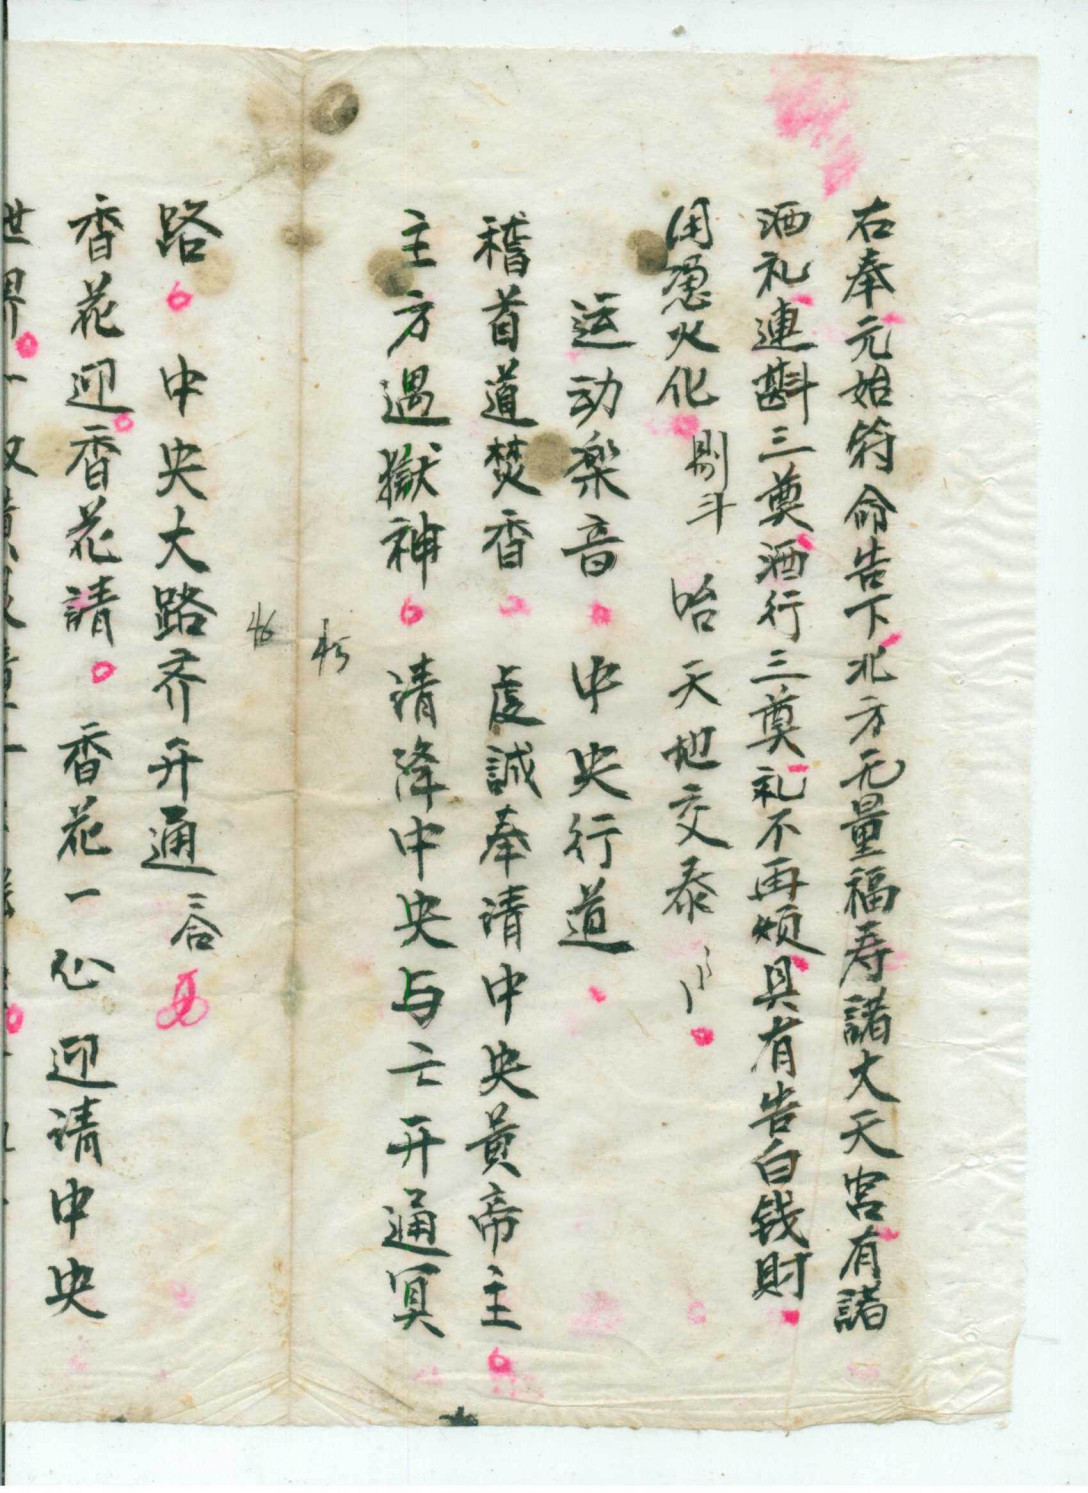 右奉元始符命告下北方无量福寿諸大天宮有諸
酒礼連斟三奠酒行三奠礼不再烦具有告白钱財
用凴火化 剔斗 咍天地交泰
运动楽音 中央行道
稽首道焚香 虔誠奉请中央黄帝主
主方遇獄神 清降中央与亡开通冥
45
46
路 中央大路齐开通 答
香花迎香花請 香花一心迎请中央
世界一